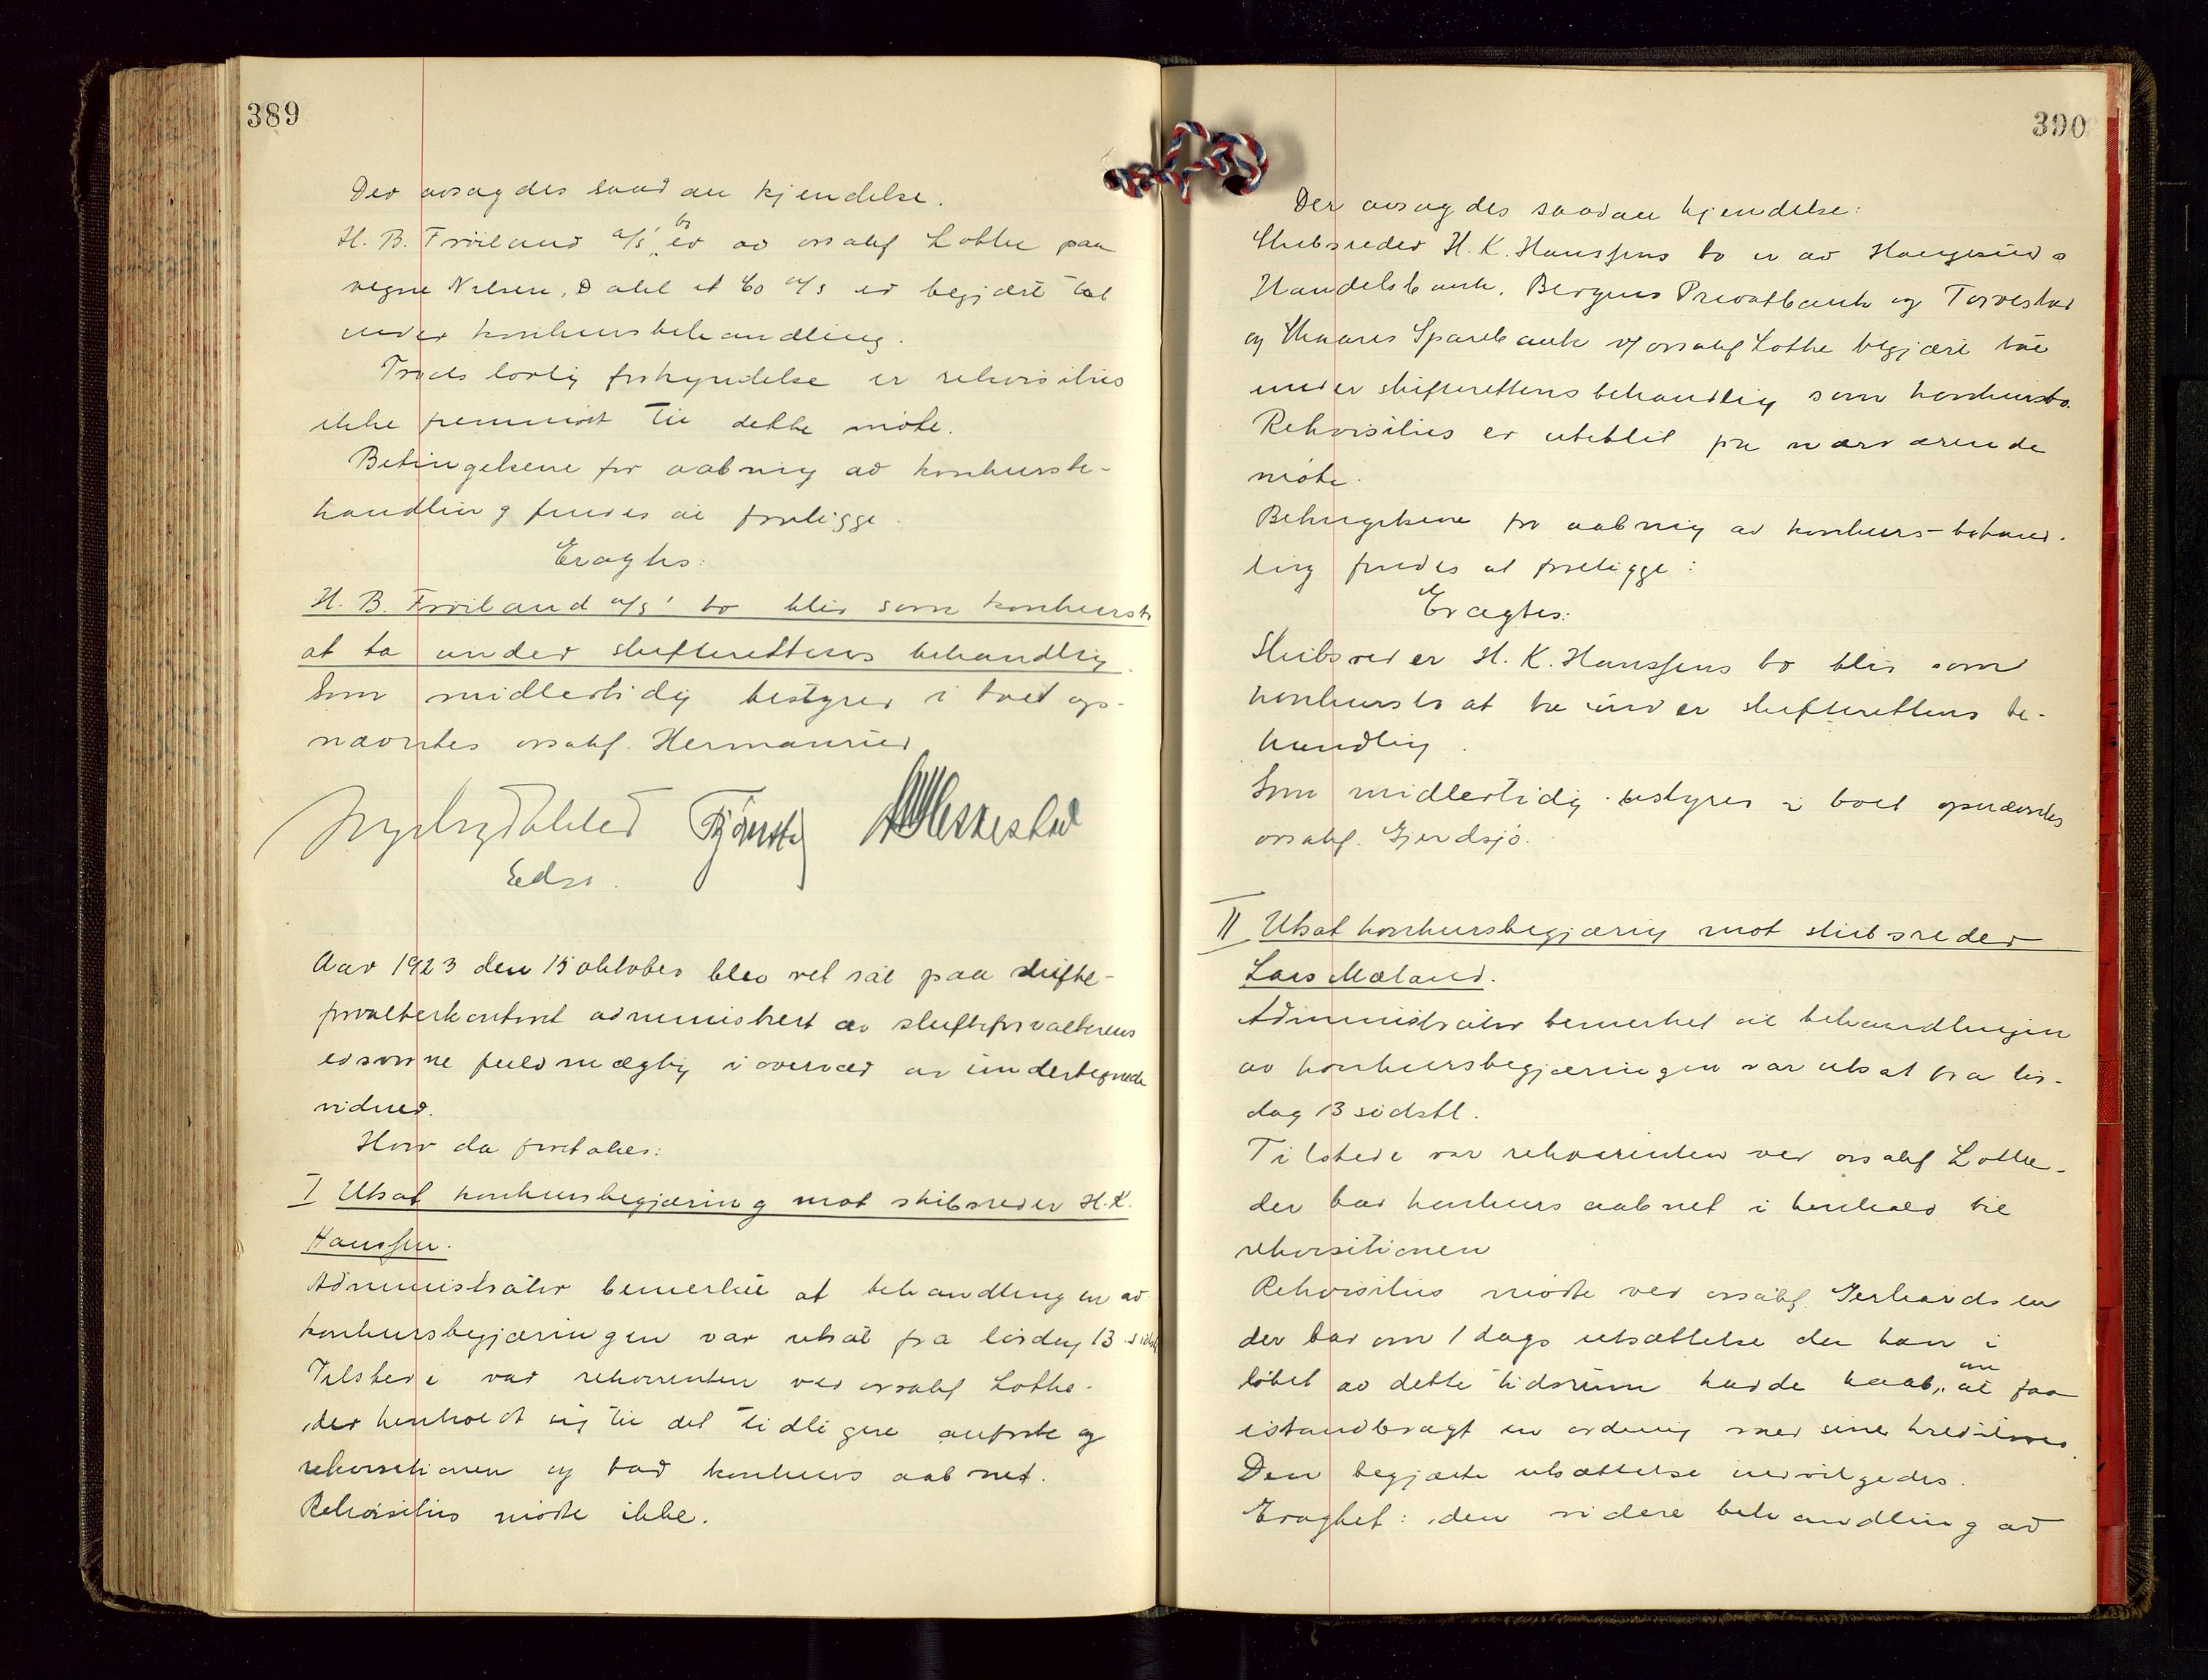 389
Der avsagdes saadan kjendelse.
H. B. Fröiland a/s' bo er av orsakf Lothe paa
vegne Nilsen, Dahl et Co a/s er begjært tat
under konkursbehandling.
Trods lovlig forkyndelse er rekvisitus
ikke fremmöt til dette möte.
Betingelsene for aabning av konkursbe-
handling findes at foreligge.
Eragtes:
H. B. Fröiland a/s' bo blir som konkursbo
at ta under skifterettens behandling.
Som midlertidig bestyrer i boet op-
nævntes orsakf. Hermansrud
Edsv.
Aar 1923 den 15 oktober blev ret sat paa skifte-
forvalterkontoret administrert av skifteforvalterens
edsvorne fuldmægtig i overvær av undertegnede
vidner.
Hvor da foretokes:
I Utsat konkursbegjæring mot skibsreder H. K.
Hanssen.
Administrator bemerket at behandlingen av
konkursbegjæringen var utsat fra lördag 13 sidstl
Tilstede var rekvirenten ved orsakf Lothe.
der henholdt sig til det tidligere anförte og
rekvisitionen og bad konkurs aabnet.
Rekvisitus mötte ikke.
390
Der avsagdes saadan kjendelse:
Skibsreder H. K. Hanssens bo er av Haugesunds
Handelsbank, Bergens Privatbank og Torvestad
og Skaares Sparebank v/ orsakf Lothe begjært tat
under skifterettens behandling som konkursbo.
Rekvisitus er uteblit fra nærværende
möte.
Betingelsene for aabning av konkurs-behand-
ling findes at foreligge:
Eragtes:
Skibsreder H. K. Hanssens bo blir som
konkursbo at ta under skifterettens be-
handling.
Som midlertidig bestyrer i boet opnævntes
orsakf. Gjerdsjö.
II Utsat konkursbegjæring mot skibsreder
Lars Mæland.
Administrator bemerket at behandlingen
av konkursbegjæringen var utsat fra lör-
dag 13 sidstl.
Tilstede var rekvirenten ved orsakf Lothe-
der bad konkurs aabnet i henhold til
rekvisitionen
Rekvisitus mötte ved orsakf. Gerhardsen
der bad om 1 dags utsættelse da han i
löbet av dette tidsrum hadde haab om at faa
istandbragt en ordning med sine kreditorer.
Den begjærte utsættelse indvilgedes.
Eragtet: den videre behandling av